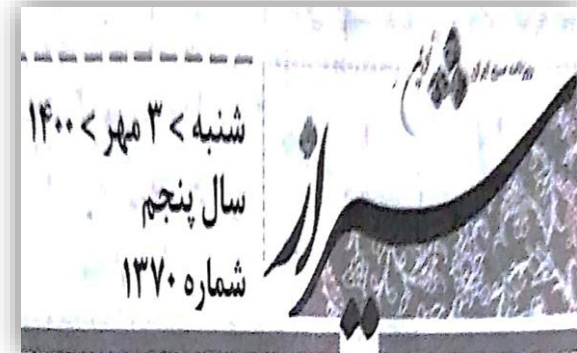 شیراز
شنبه > ۳ مهر > ۱۴۰۰
سال پنجم
شماره ۱۳۷۰